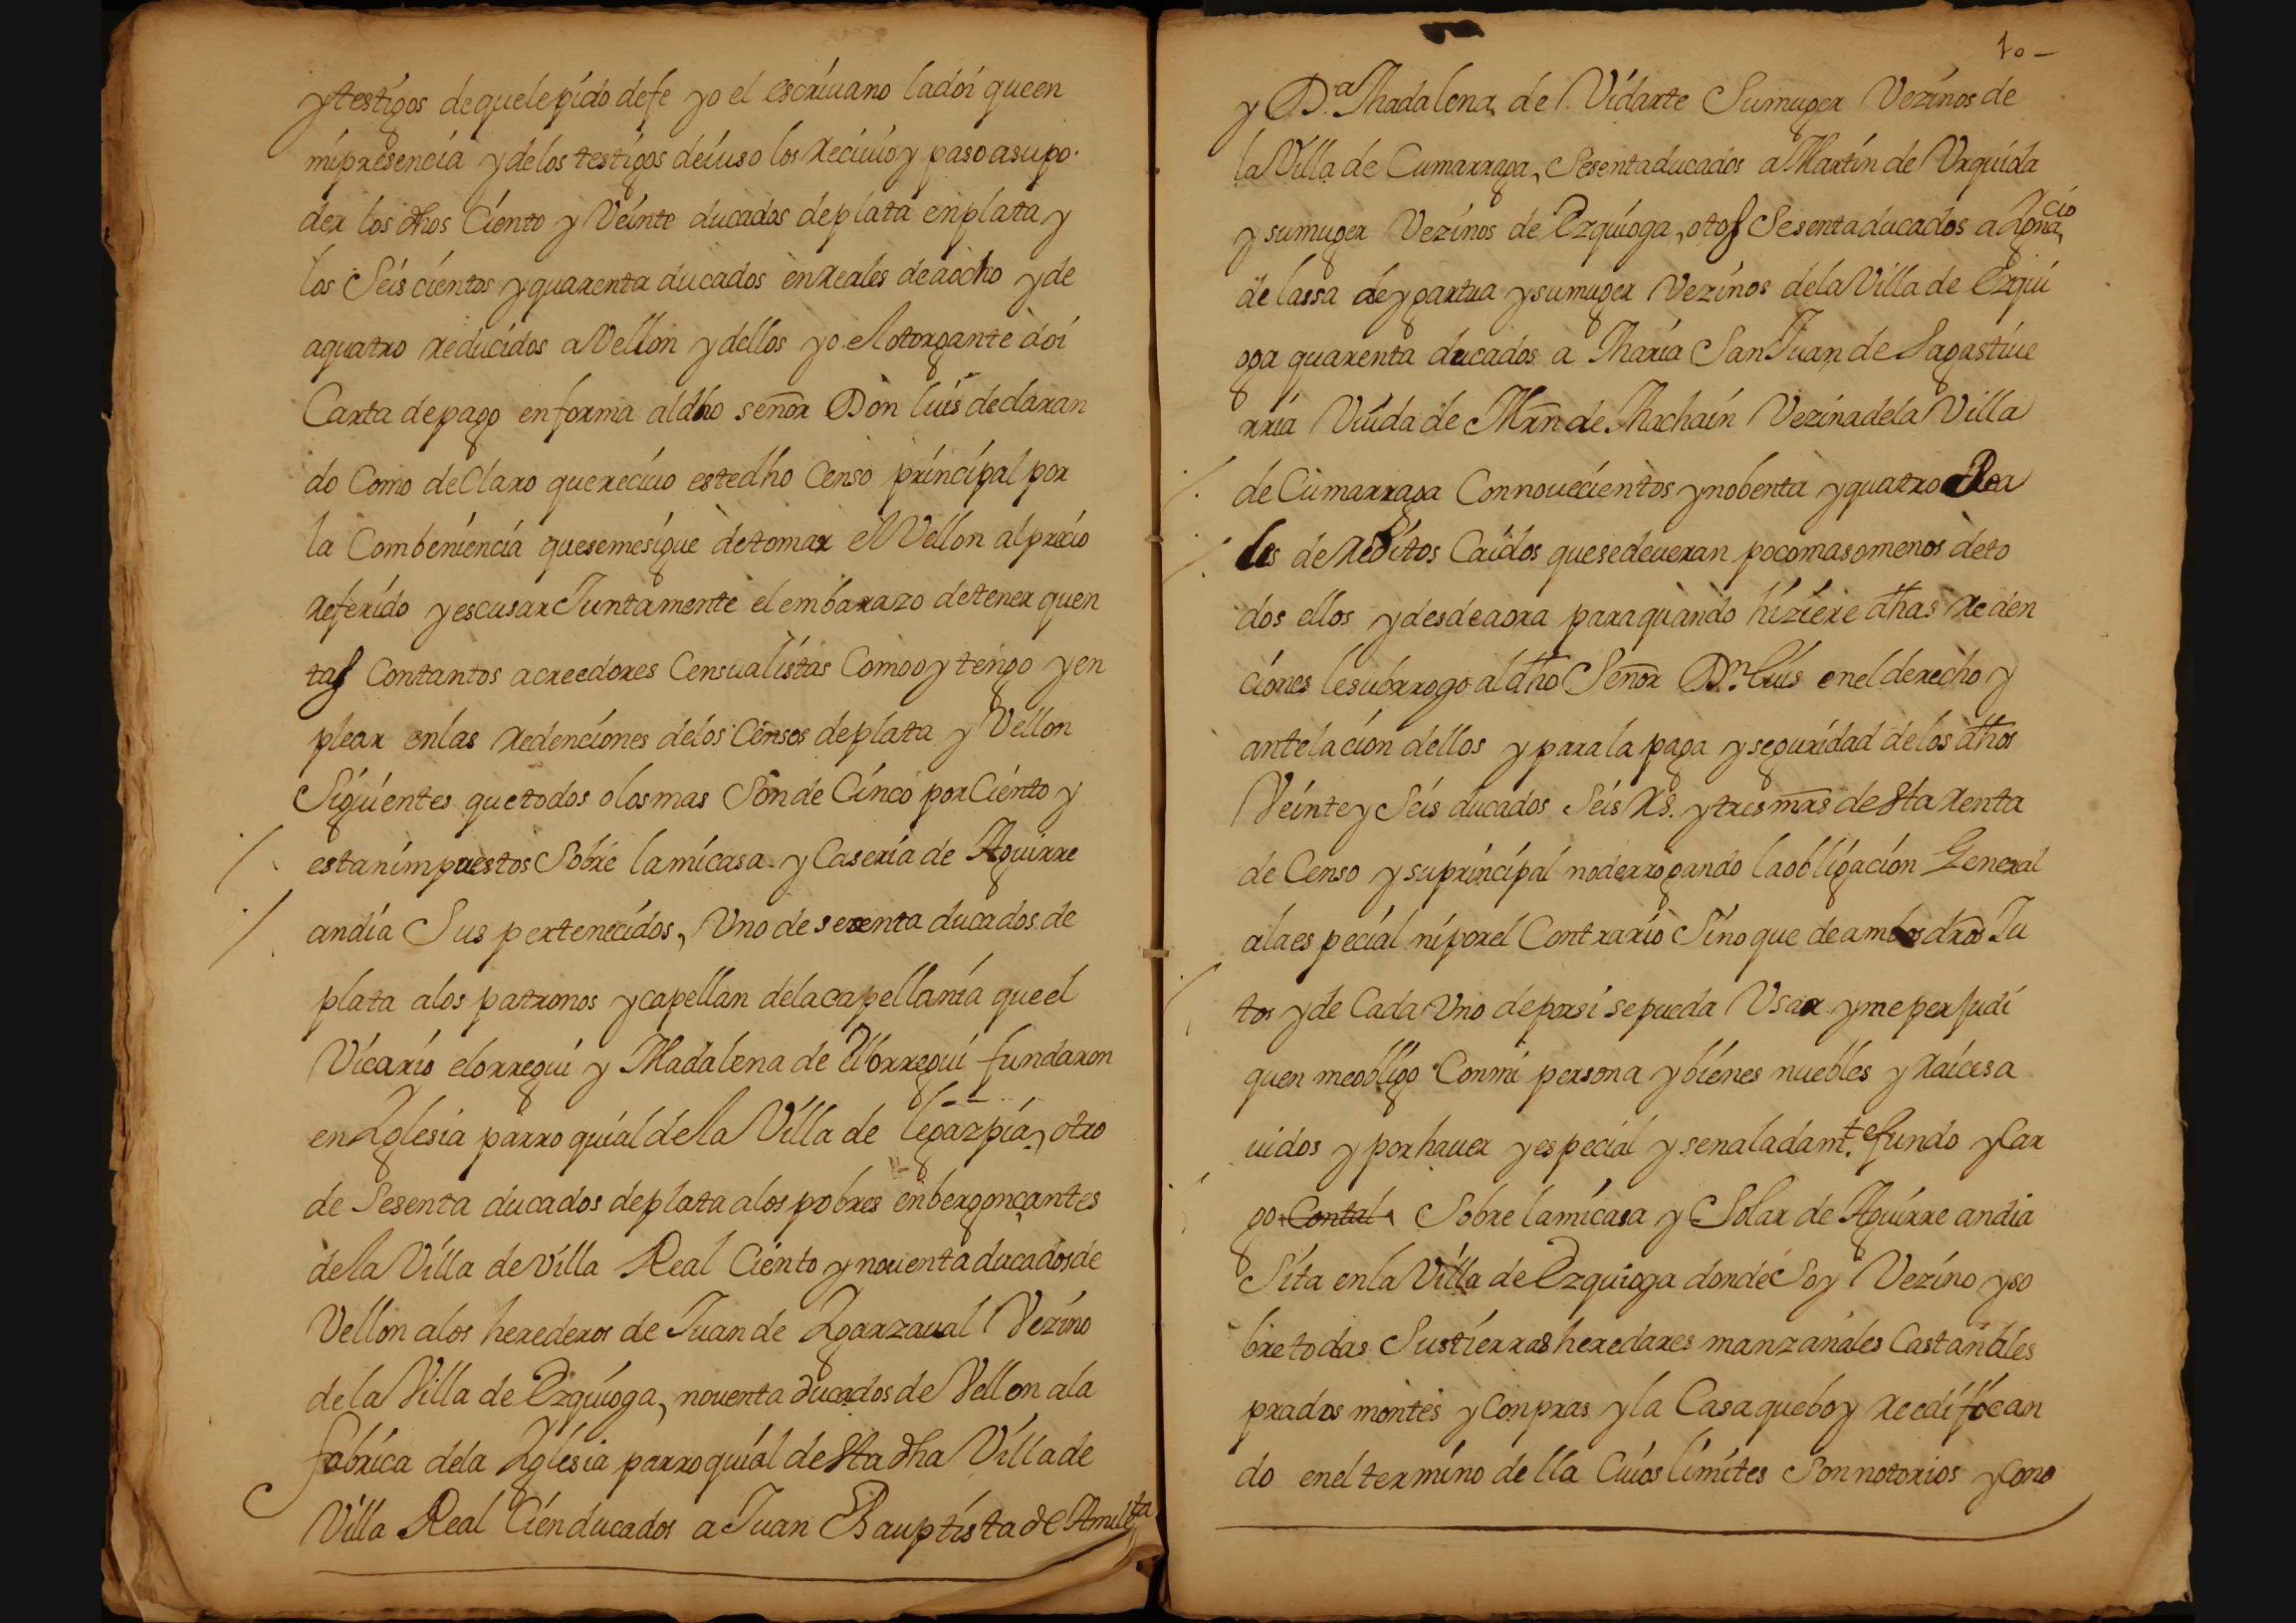 y testigos de que le pido de fe yo el escriuano la doi que en
mi presencia y de los testigos deiuso los Reciuio y paso a su po.
der los dhos Ciento y Veinte ducados de plata en plata y
los Seis cientos y quarenta ducados en Reales de a ocho y de
a quatro Reducidos a Vellon y dellos yo el otorgante doi
Carta de pago en forma al dho señor Don luis declaran
do Como de Claro que reciuo este dho Censo principal por
la Combeniencia que se me sigue de tomar el Vellon al precio
Referido y escusar Juntamente el embarazo de tener quen
tas Con tantos acreedores Censualistas Como oy tengo y en
plear en las Redenciones de los Censos de plata y Vellon
Siguientes que todos o los mas Son de Cinco por Ciento y
estan impuestos Sobre la mi casa y Caseria de Aguirre
andia Sus pertenecidos, Uno de sesenta ducados de
plata a los patronos y capellan de la capellania que el
Vicario elorregui y Madalena de Elorregui fundaron
en Iglesia parroquial de la Villa de legazpia, otro
de Sesenta ducados de plata a los pobres enbergonçantes
de la Villa de Villa Real Ciento y nouenta ducados de
Vellon a los herederos de Juan de Igarzaual Vezino
de la Villa de Ezquioga, nouenta ducados de Vellon a la
fabrica de la Iglesia parroquial de sta dha Villa de
Villa Real Cien ducados a Juan Bauptista de
10
y D.ª Madalena de Vidarte Su muger Vezinos de
la Villa de Cumarraga, Sesenta ducados a Martin de Urquida
y su muger Vezinos de Ezquioga, otos Sesenta ducados a Ignacio
de lassa de y su muger Vezinos de la Villa de Ezqui
oga quarenta ducados a Maria San Juan de Sagastiue
rria Viuda de Mrn de Machain Vezina de la Villa
de Cumarraga Con nouecientos y nobenta y quatro Rea
les de Reditos Caidos que se deueran poco mas o menos de to
dos ellos y desde aora para quando hiziere dhas Reden
ciones le subrrogo al dho Señor Dn. Luis en el derecho y
antelacion dellos y para la paga y seguridad de los dhos
Veinte y Seis ducados Seis Rs. y tres mrs de sta Renta
de Censo y su principal no derrogando la obligacion General
a la especial ni por el Contrario Sino que de ambos dros Ju
tos y de Cada Uno de por si se pueda Usar y me perJudi
quen me obligo Con mi persona y bienes muebles y Raices a
uidos y por hauer y especial y senaladamte. fundo y Car
go Contal Sobre la mi casa y Solar de Aguirre andia
Sita en la Villa de Ezquioga donde Soy Vezino y so
bre todas Sus tierras heredares manzanales Castanales
prados montes y Conpras y la Casa que boy Reedifican
do en el termino de lla Cuios limites Son notorios y Cono